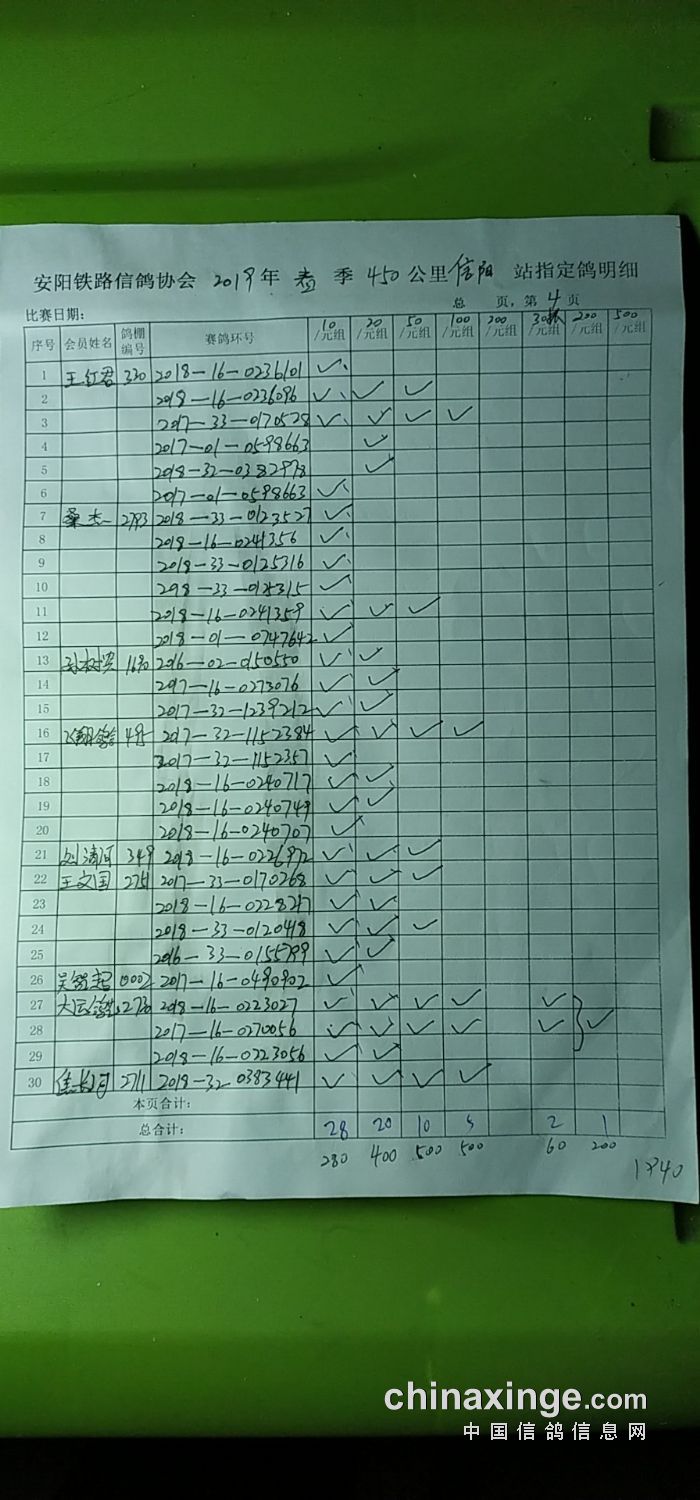 安阳铁路信鸽协会 2019 年 春 季 450 公里 信阳 站指定鸽明细
比赛日期： 总 页，第 4 页
序号 会员姓名 鸽棚编号 赛鸽环号 10/元组 20/元组 50/元组 100/元组 200/元组 30/元组 200/元组 500/元组
1 王红君 330 2018-16-0236101 ✓
2 2018-16-0236096 ✓ ✓ ✓
3 2017-33-0170528 ✓ ✓ ✓ ✓
4 2017-01-0598663 ✓
5 2018-32-0382978 ✓
6 2017-01-0598663 ✓
7 桑杰 2793 2018-33-0123527 ✓
8 2018-16-0241356 ✓
9 2018-33-0125316 ✓
10 2018-33-0125315 ✓
11 2018-16-0241359 ✓ ✓ ✓
12 2018-01-0747642 ✓
13 1690 2016-02-0150550 ✓ ✓
14 2017-16-0273076 ✓ ✓
15 2017-32-1239212 ✓ ✓
16 2017-32-1152384 ✓ ✓ ✓ ✓
17 2017-32-1152357 ✓
18 2018-16-0240717 ✓ ✓
19 2018-16-0240749 ✓ ✓
20 2018-16-0240707 ✓
21 刘清河 349 2018-16-0226972 ✓ ✓ ✓
22 王文国 2751 2017-33-0170268 ✓ ✓ ✓
23 2018-16-0228247 ✓ ✓
24 2018-33-0120418 ✓ ✓ ✓
25 2016-33-0155799 ✓ ✓
26 0002 2017-16-0490902 ✓
27 2730 2018-16-0223027 ✓ ✓ ✓ ✓ ✓
28 2017-16-0270056 ✓ ✓ ✓ ✓ ✓ ✓
29 2018-16-0223056 ✓ ✓
30 2711 2018-32-0383441 ✓ ✓ ✓ ✓
本页合计：
总合计： 28 20 10 5 2 1
280 400 500 500 60 200
1940
chinaxinge.com
中国信鸽信息网